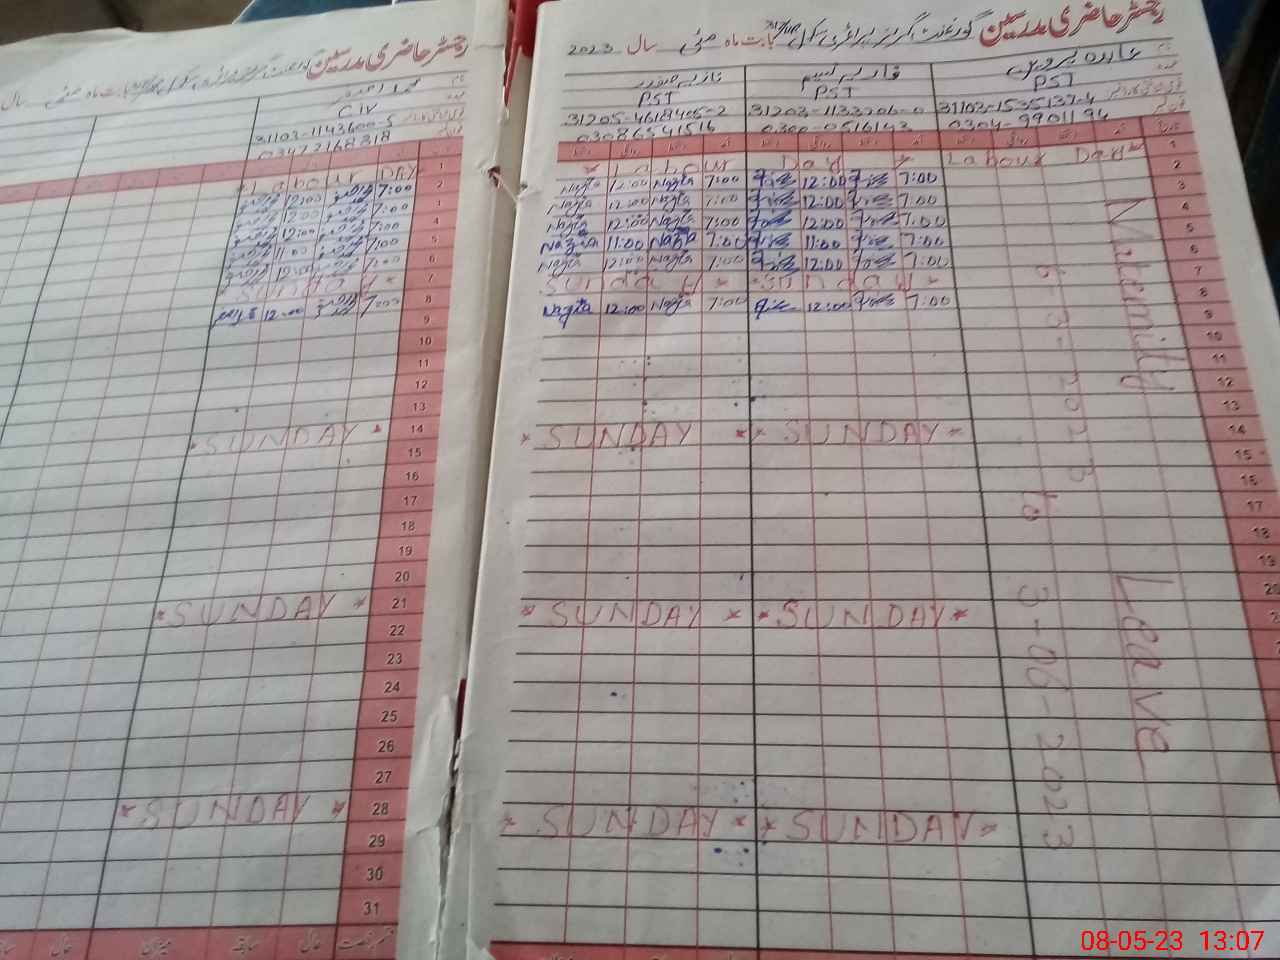 رجسٹر حاضری مدرسین گورنمنٹ گرلز پرائمری سکول بابت ماہ مئی سال 2023
عابدہ پروین
PST
31103-1535137-4
0304-9901194
PST
0300-0516143
نازیہ صفدر
PST
31205-4618405-2
03086541516
* Labour Day *
Labour Day
Nazia 12:00 Nazia 7:00 12:00 7:00
Nazia 12:00 Nazia 7:00 12:00 7:00
Nazia 12:00 Nazia 7:00 12:00 7:00
Nazia 11:00 Nazia 7:00 11:00 7:00
Nazia 12:00 Nazia 7:00 12:00 7:00
Sunday * Sunday *
Nazia 12:00 Nazia 7:00 12:00 7:00
* SUNDAY * * SUNDAY *
* SUNDAY * * SUNDAY *
* SUNDAY * * SUNDAY *
Maternity Leave
6-3-2023 to 3-06-2023
1
2
3
4
5
6
7
8
9
10
11
12
13
14
15
16
17
18
19
رجسٹر حاضری مدرسین
بابت ماہ مئی سال
محمد احمد
CIV
31103-1143600-5
03472168318
* Labour DAY
12:00 7:00
12:00 7:00
12:00 7:00
11:00 7:00
12:00 7:00
* SUNDAY *
12:00 7:00
* SUNDAY *
* SUNDAY *
* SUNDAY *
1
2
3
4
5
6
7
8
9
10
11
12
13
14
15
16
17
18
19
20
21
22
23
24
25
26
27
28
29
30
31
قسم رخصت حالی سابقہ میزان حالی
08-05-23 13:07